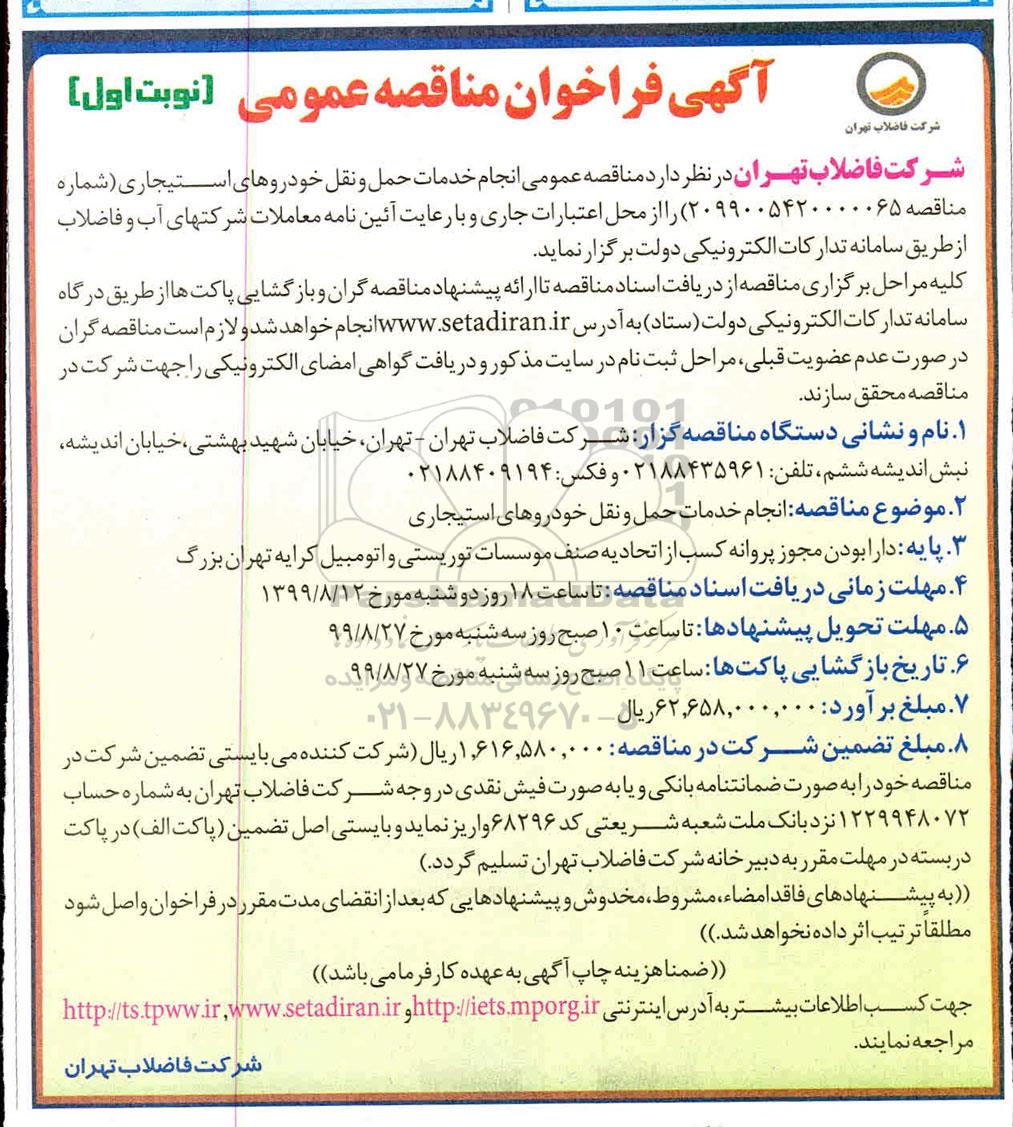 آگهی فراخوان مناقصه عمومی
[نوبت اول]
شرکت فاضلاب تهران
شرکت فاضلاب تهران در نظر دارد مناقصه عمومی انجام خدمات حمل و نقل خودروهای استیجاری (شماره
مناقصه ۲۰۹۹۰۰۵۴۲۰۰۰۰۰۶۵) را از محل اعتبارات جاری و با رعایت آئین نامه معاملات شرکتهای آب و فاضلاب
از طریق سامانه تدارکات الکترونیکی دولت برگزار نماید.
کلیه مراحل برگزاری مناقصه از دریافت اسناد مناقصه تا ارائه پیشنهاد مناقصه گران و بازگشایی پاکت ها از طریق درگاه
سامانه تدارکات الکترونیکی دولت (ستاد) به آدرس www.setadiran.ir انجام خواهد شد و لازم است مناقصه گران
در صورت عدم عضویت قبلی، مراحل ثبت نام در سایت مذکور و دریافت گواهی امضای الکترونیکی را جهت شرکت در
مناقصه محقق سازند.
۱. نام و نشانی دستگاه مناقصه گزار: شرکت فاضلاب تهران - تهران، خیابان شهید بهشتی، خیابان اندیشه،
نبش اندیشه ششم، تلفن: ۰۲۱۸۸۴۳۵۹۶۱ و فکس: ۰۲۱۸۸۴۰۹۱۹۴
۲. موضوع مناقصه: انجام خدمات حمل و نقل خودروهای استیجاری
۳. پایه: دارا بودن مجوز پروانه کسب از اتحادیه صنف موسسات توریستی و اتومبیل کرایه تهران بزرگ
۴. مهلت زمانی دریافت اسناد مناقصه: تا ساعت ۱۸ روز دوشنبه مورخ ۱۳۹۹/۸/۱۲
۵. مهلت تحویل پیشنهادها: تا ساعت ۱۰ صبح روز سه شنبه مورخ ۹۹/۸/۲۷
۶. تاریخ بازگشایی پاکت ها: ساعت ۱۱ صبح روز سه شنبه مورخ ۹۹/۸/۲۷
پایگاه اطلاع رسانی مناقصه و مزایده
۷. مبلغ برآورد: ۶۲,۶۵۸,۰۰۰,۰۰۰ ریال
۰۲۱-۸۸۳۴۹۶۷۰-۵
۸. مبلغ تضمین شرکت در مناقصه: ۱,۶۱۶,۵۸۰,۰۰۰ ریال (شرکت کننده می بایستی تضمین شرکت در
مناقصه خود را به صورت ضمانتنامه بانکی و یا به صورت فیش نقدی در وجه شرکت فاضلاب تهران به شماره حساب
۱۲۲۹۹۴۸۰۷۲ نزد بانک ملت شعبه شریعتی کد ۶۸۲۹۶ واریز نماید و بایستی اصل تضمین (پاکت الف) در پاکت
دربسته در مهلت مقرر به دبیرخانه شرکت فاضلاب تهران تسلیم گردد.)
((به پیشنهادهای فاقد امضاء، مشروط، مخدوش و پیشنهادهایی که بعد از انقضای مدت مقرر در فراخوان واصل شود
مطلقاً ترتیب اثر داده نخواهد شد.))
((ضمنا هزینه چاپ آگهی به عهده کارفرما می باشد))
جهت کسب اطلاعات بیشتر به آدرس اینترنتی http://iets.mporg.ir و http://ts.tpww.ir ,www.setadiran.ir
مراجعه نمایند.
شرکت فاضلاب تهران